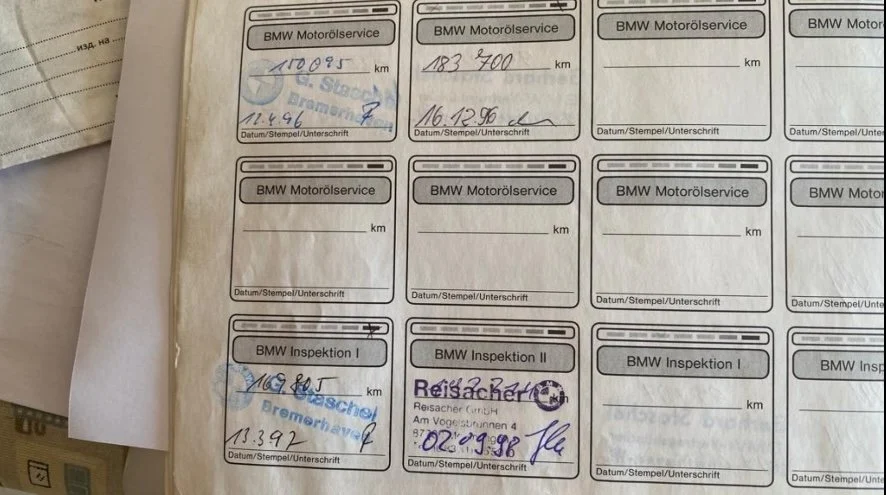 изд. на
BMW Motorölservice
150095 km
G. Staschel
Bremerhaven
12.4.96
Datum/Stempel/Unterschrift
BMW Motorölservice
183 700 km
16.12.96
Datum/Stempel/Unterschrift
BMW Motorölservice
km
Datum/Stempel/Unterschrift
BMW Motoröl
Datum/Stempel
BMW Motorölservice
km
Datum/Stempel/Unterschrift
BMW Motorölservice
km
Datum/Stempel/Unterschrift
BMW Motorölservice
km
Datum/Stempel/Unterschrift
BMW Motor
Datum/Stempel
BMW Inspektion I
169805 km
G. Staschel
Bremerhaven
13.3.97
Datum/Stempel/Unterschrift
BMW Inspektion II
Reisacher km
Reisacher GmbH
Am Vogelsbrunnen 4
02.09.98
Datum/Stempel/Unterschrift
BMW Inspektion I
km
Datum/Stempel/Unterschrift
BMW Insp
Datum/Stempel